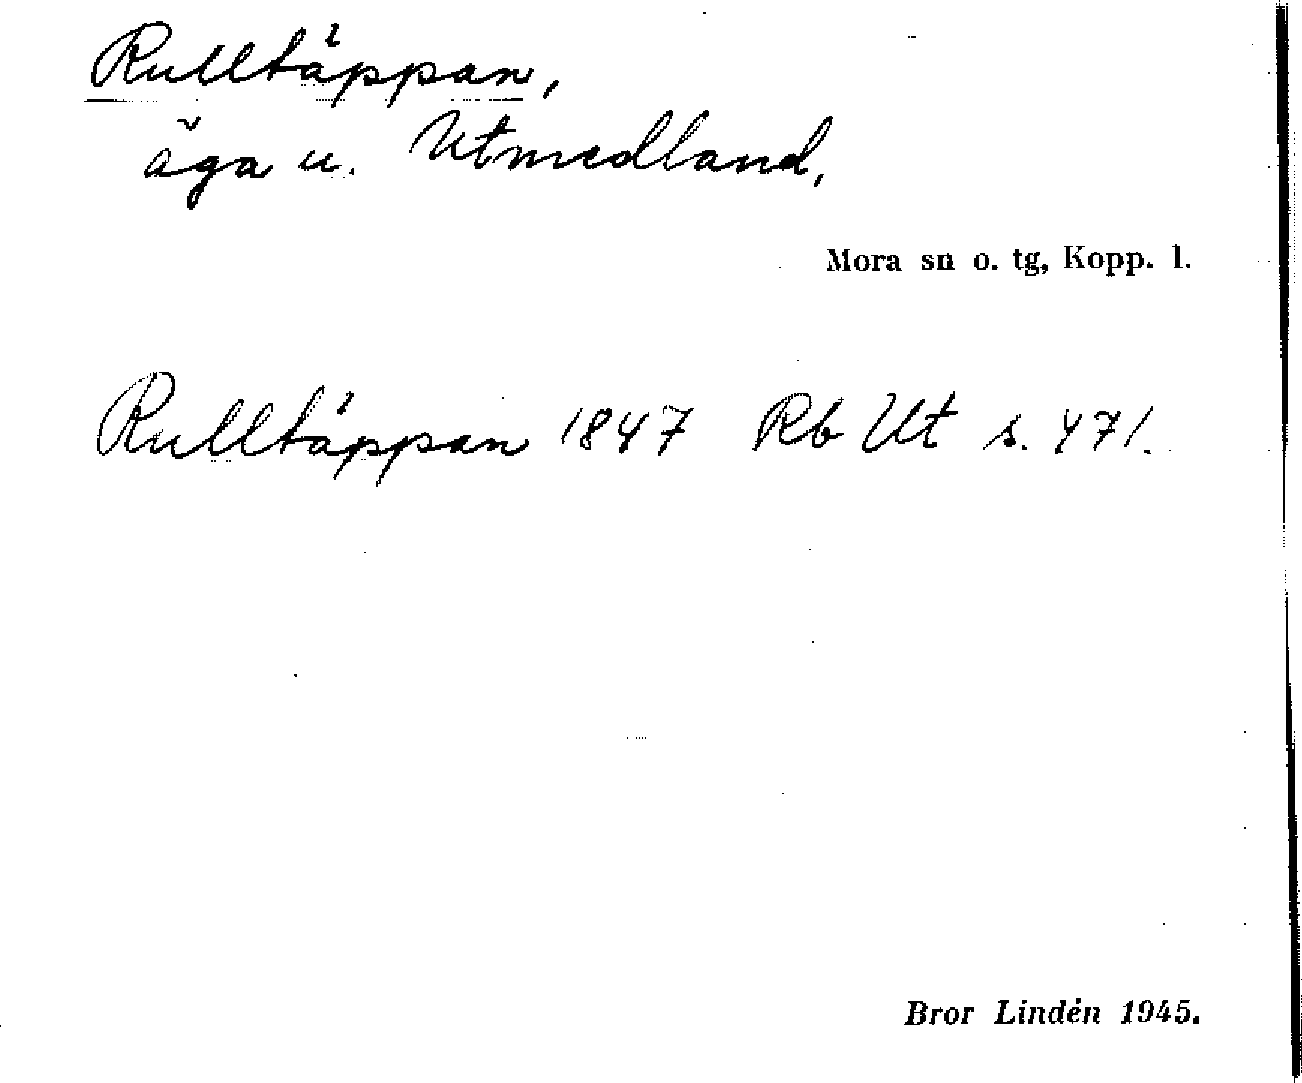 Rulltäppan,
äga u. Utmedland,
Mora sn o. tg, Kopp. l.
Rulltäppan 1847 Rb Ut s. 471.
Bror Lindén 1945.